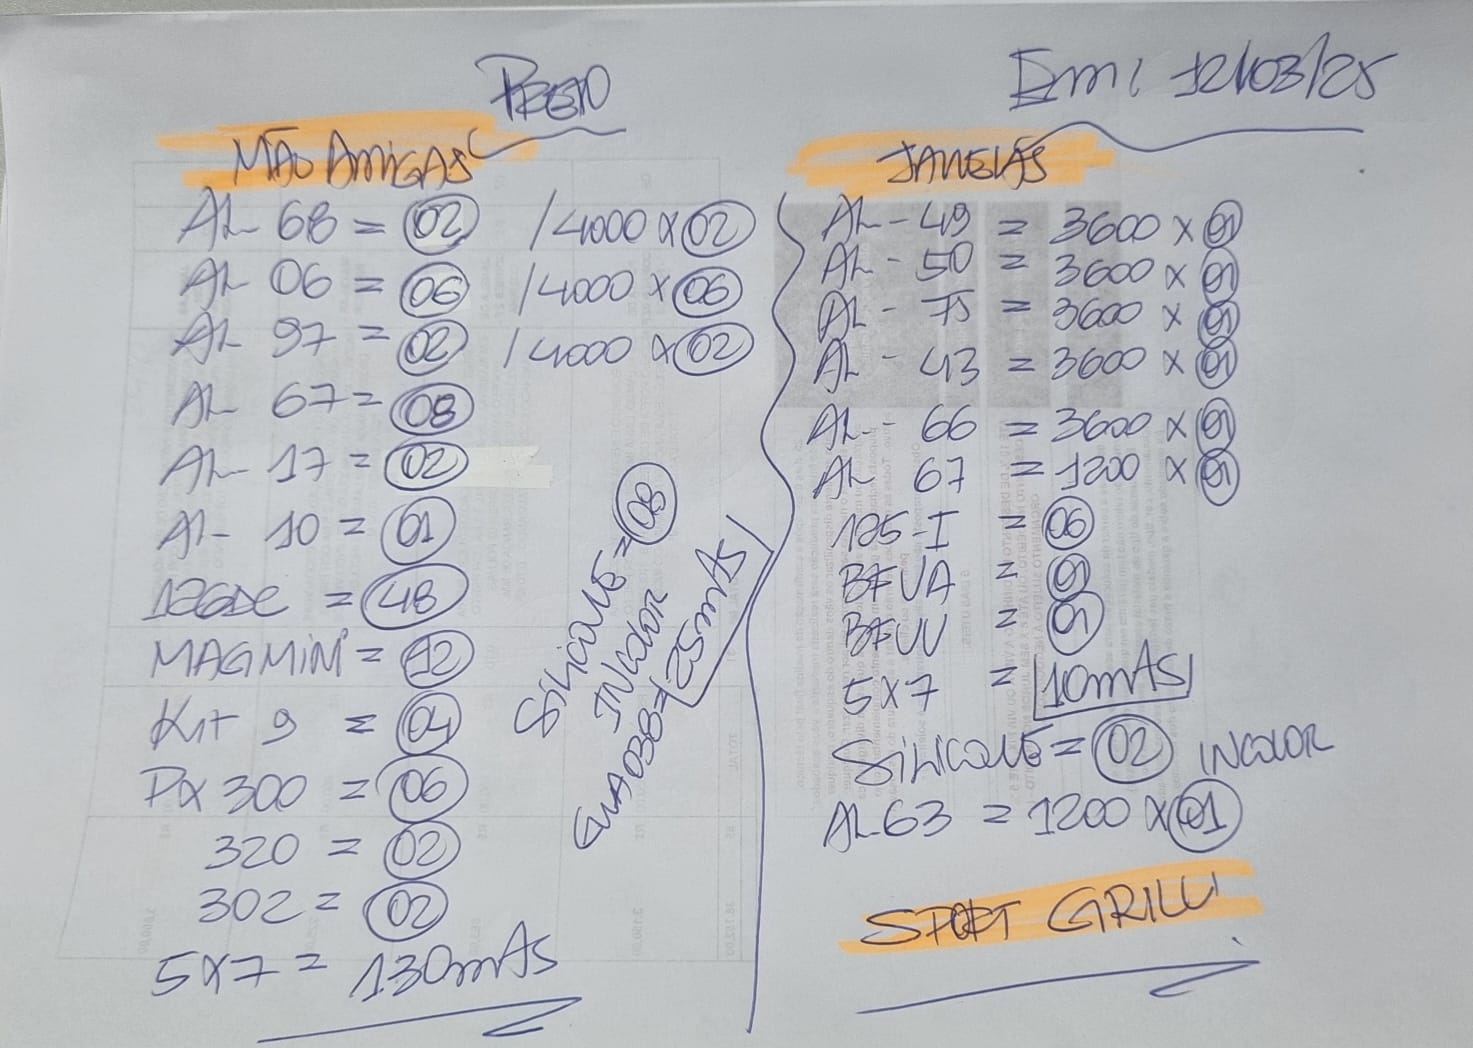 Em: 12/03/25
MÃO AMIGAS
AL 68 = 02 / 4000 x 02
AL 06 = 06 / 4000 x 06
AL 97 = 02 / 4000 x 02
AL 67 = 08
AL 17 = 02
AL 10 = 01
= 48
MAGMIM = 12
Kit 9 = 04
PX 300 = 06
320 = 02
302 = 02
5x7 = 130mAs
SILICONE = 08
INCOLOR
= 25mAs
JANELAS
AL - 49 = 3600 x 01
AL - 50 = 3600 x 01
AL - 75 = 3600 x 01
AL - 43 = 3600 x 01
AL - 66 = 3600 x 01
AL 67 = 1200 x 01
125-I = 06
BFVA = 01
BFVV = 01
5x7 = 10mAs
SILICONE = 02 INCOLOR
AL 63 = 1200 x 01
SPORT GRILL